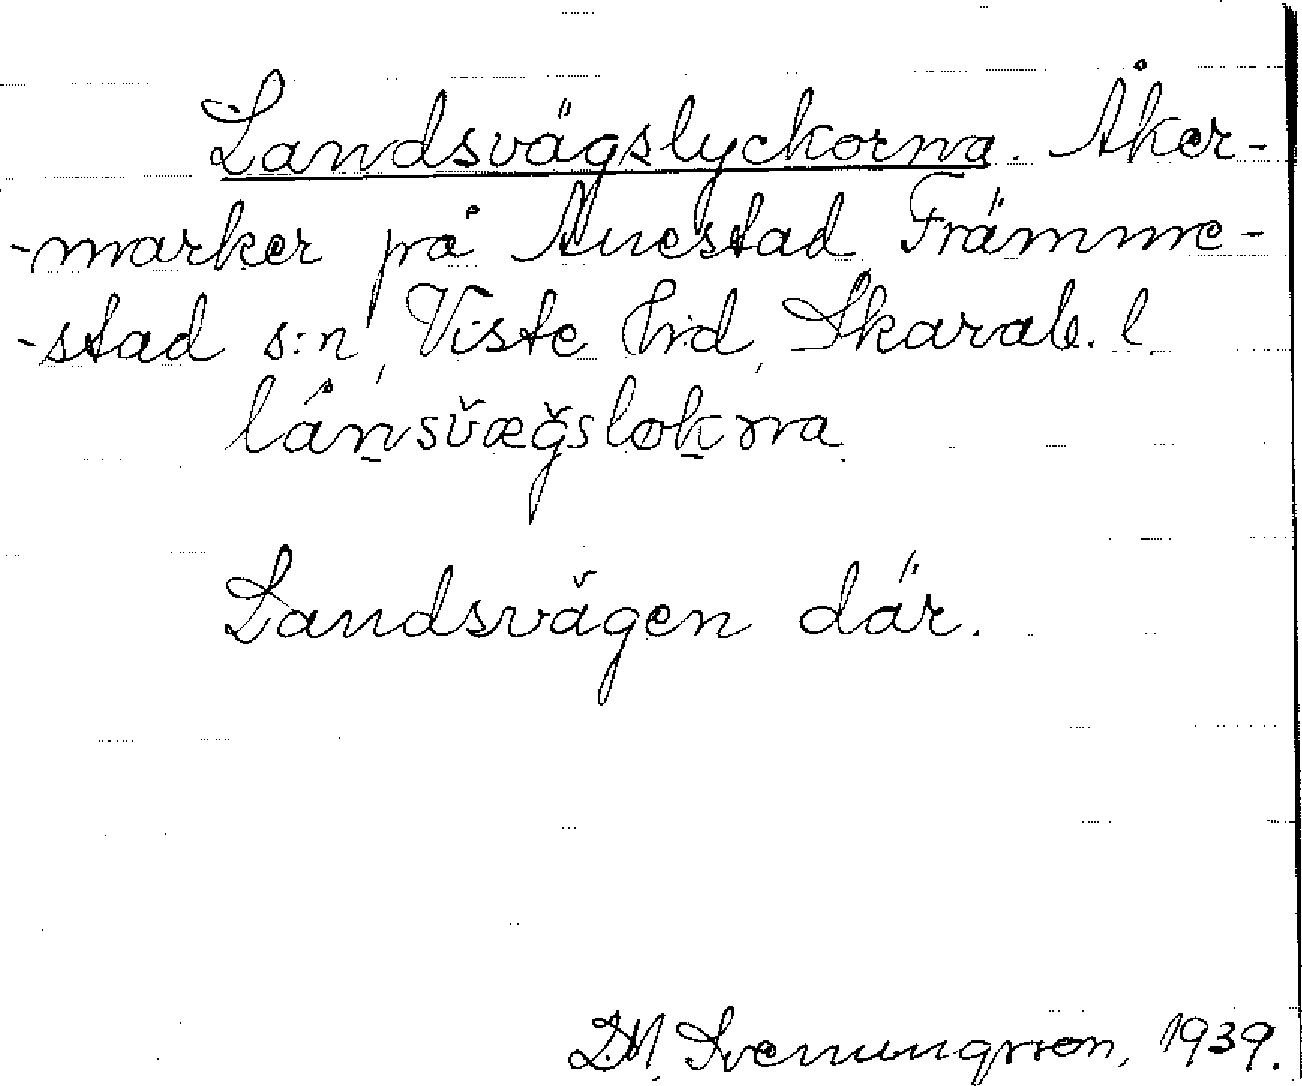 Landsvägslyckorna. Åker-
-marker på Anestad Främme-
-stad s:n, Viste hd, Skarab. l.
lånsvægslokrna
Landsvägen där.
D.M. Svenungsson, 1939.